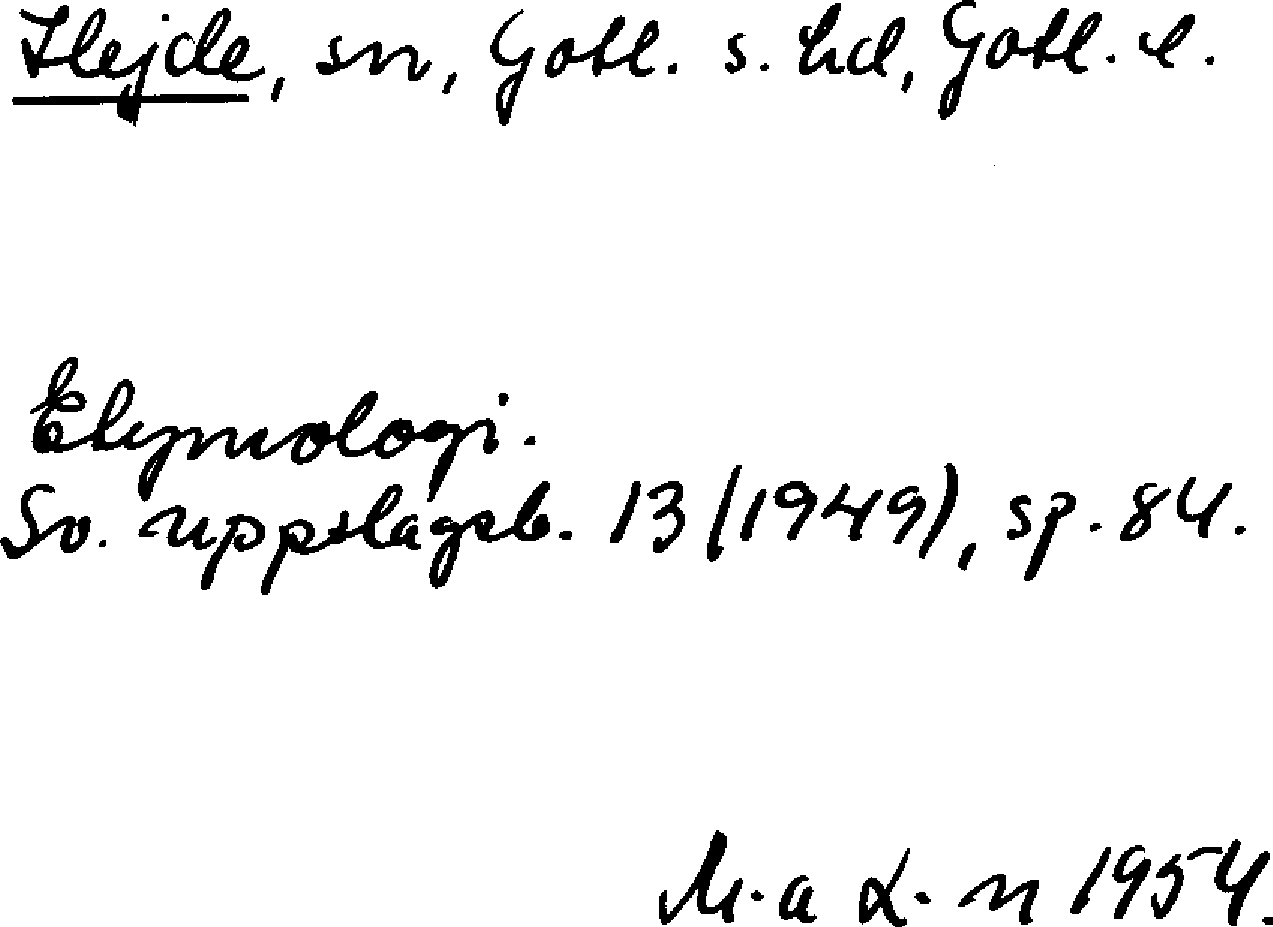 Hejde, sn, Gotl. s. hd, Gotl. l.
Etymologi.
Sv. uppslagsb. 13 (1949), sp. 84.
M. a L. n 1954.